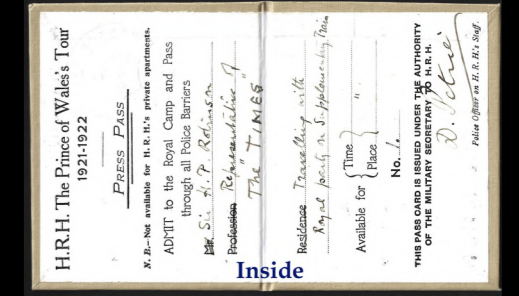 H.R.H. The Prince of Wales's Tour
1921-1922
PRESS PASS
N. B.—Not available for H. R. H.'s private apartments.
ADMIT to the Royal Camp and Pass
through all Police Barriers
Mr Sir H. P. Robinson
Profession Representative of
The "TIMES"
Residence Travelling with
Royal party on Supplementary Train
Available for { Time
Place } "
No. 6
THIS PASS CARD IS ISSUED UNDER THE AUTHORITY
OF THE MILITARY SECRETARY TO H. R. H.
D. Petrie
Police Officer on H. R. H.'s Staff.
Inside